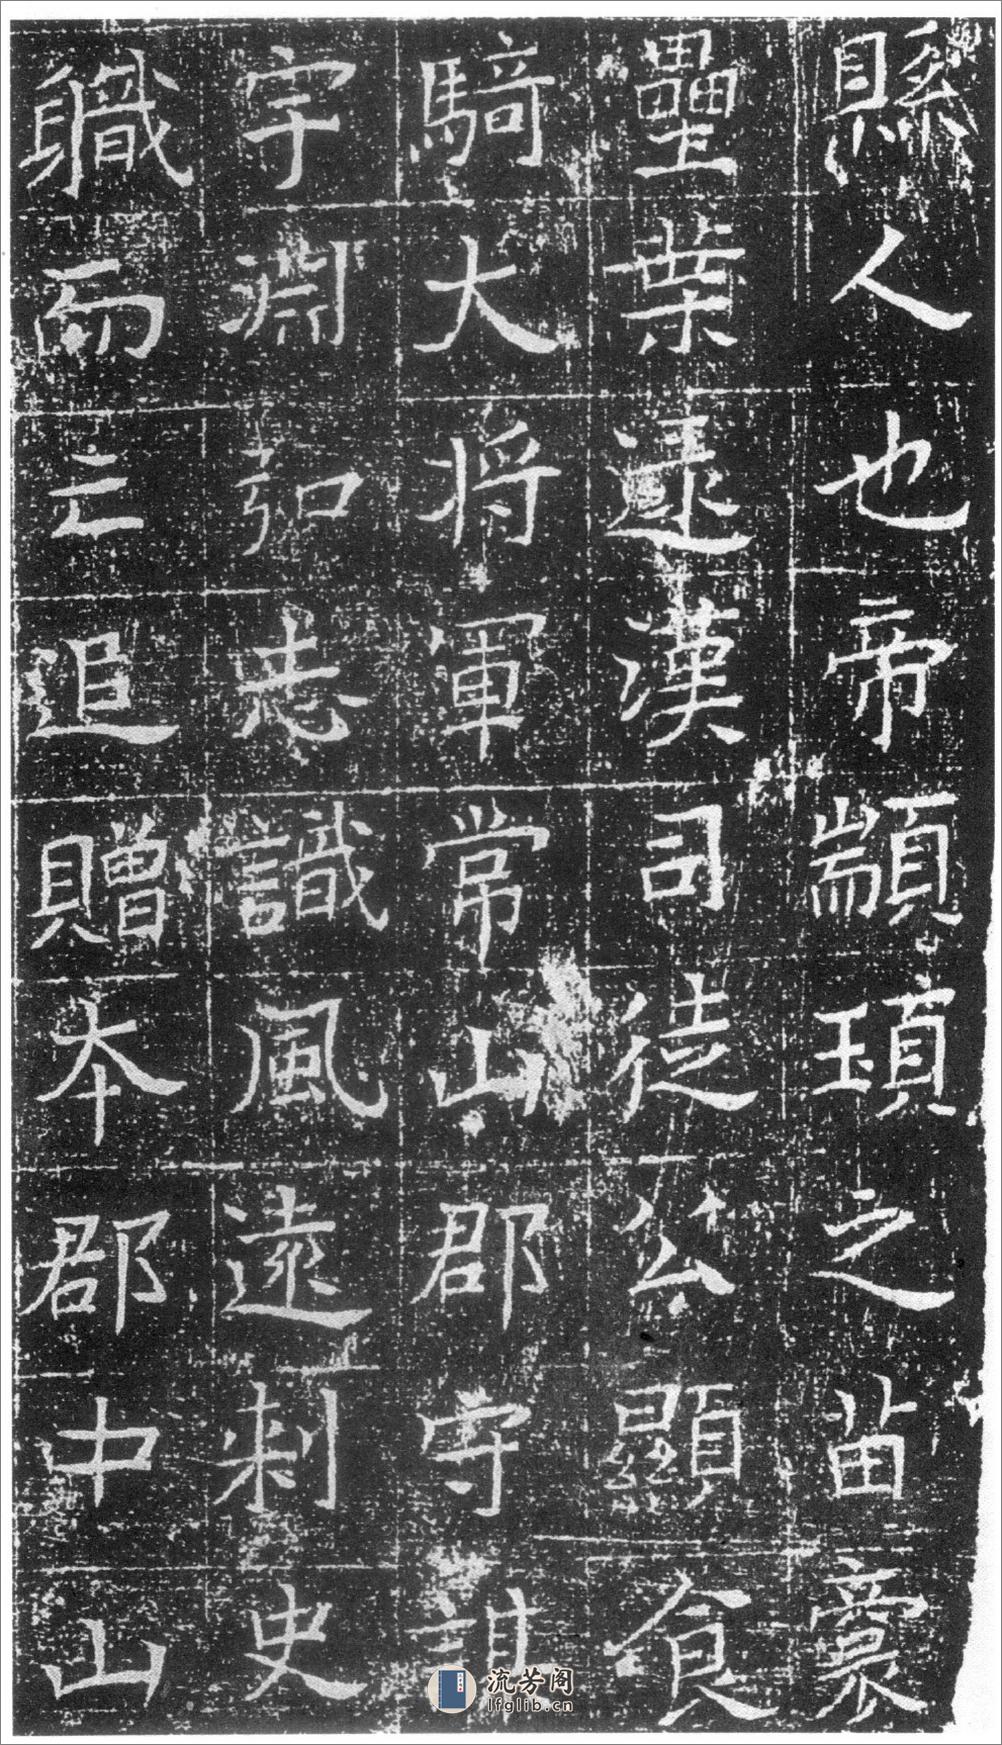 縣人也帝顓頊之苗裔
壘葉逮漢司徒公顯食
騎大将軍常山郡守
字淵弘識風遠刺史
職而亡追贈本郡中山
流芳阁
lfglib.cn